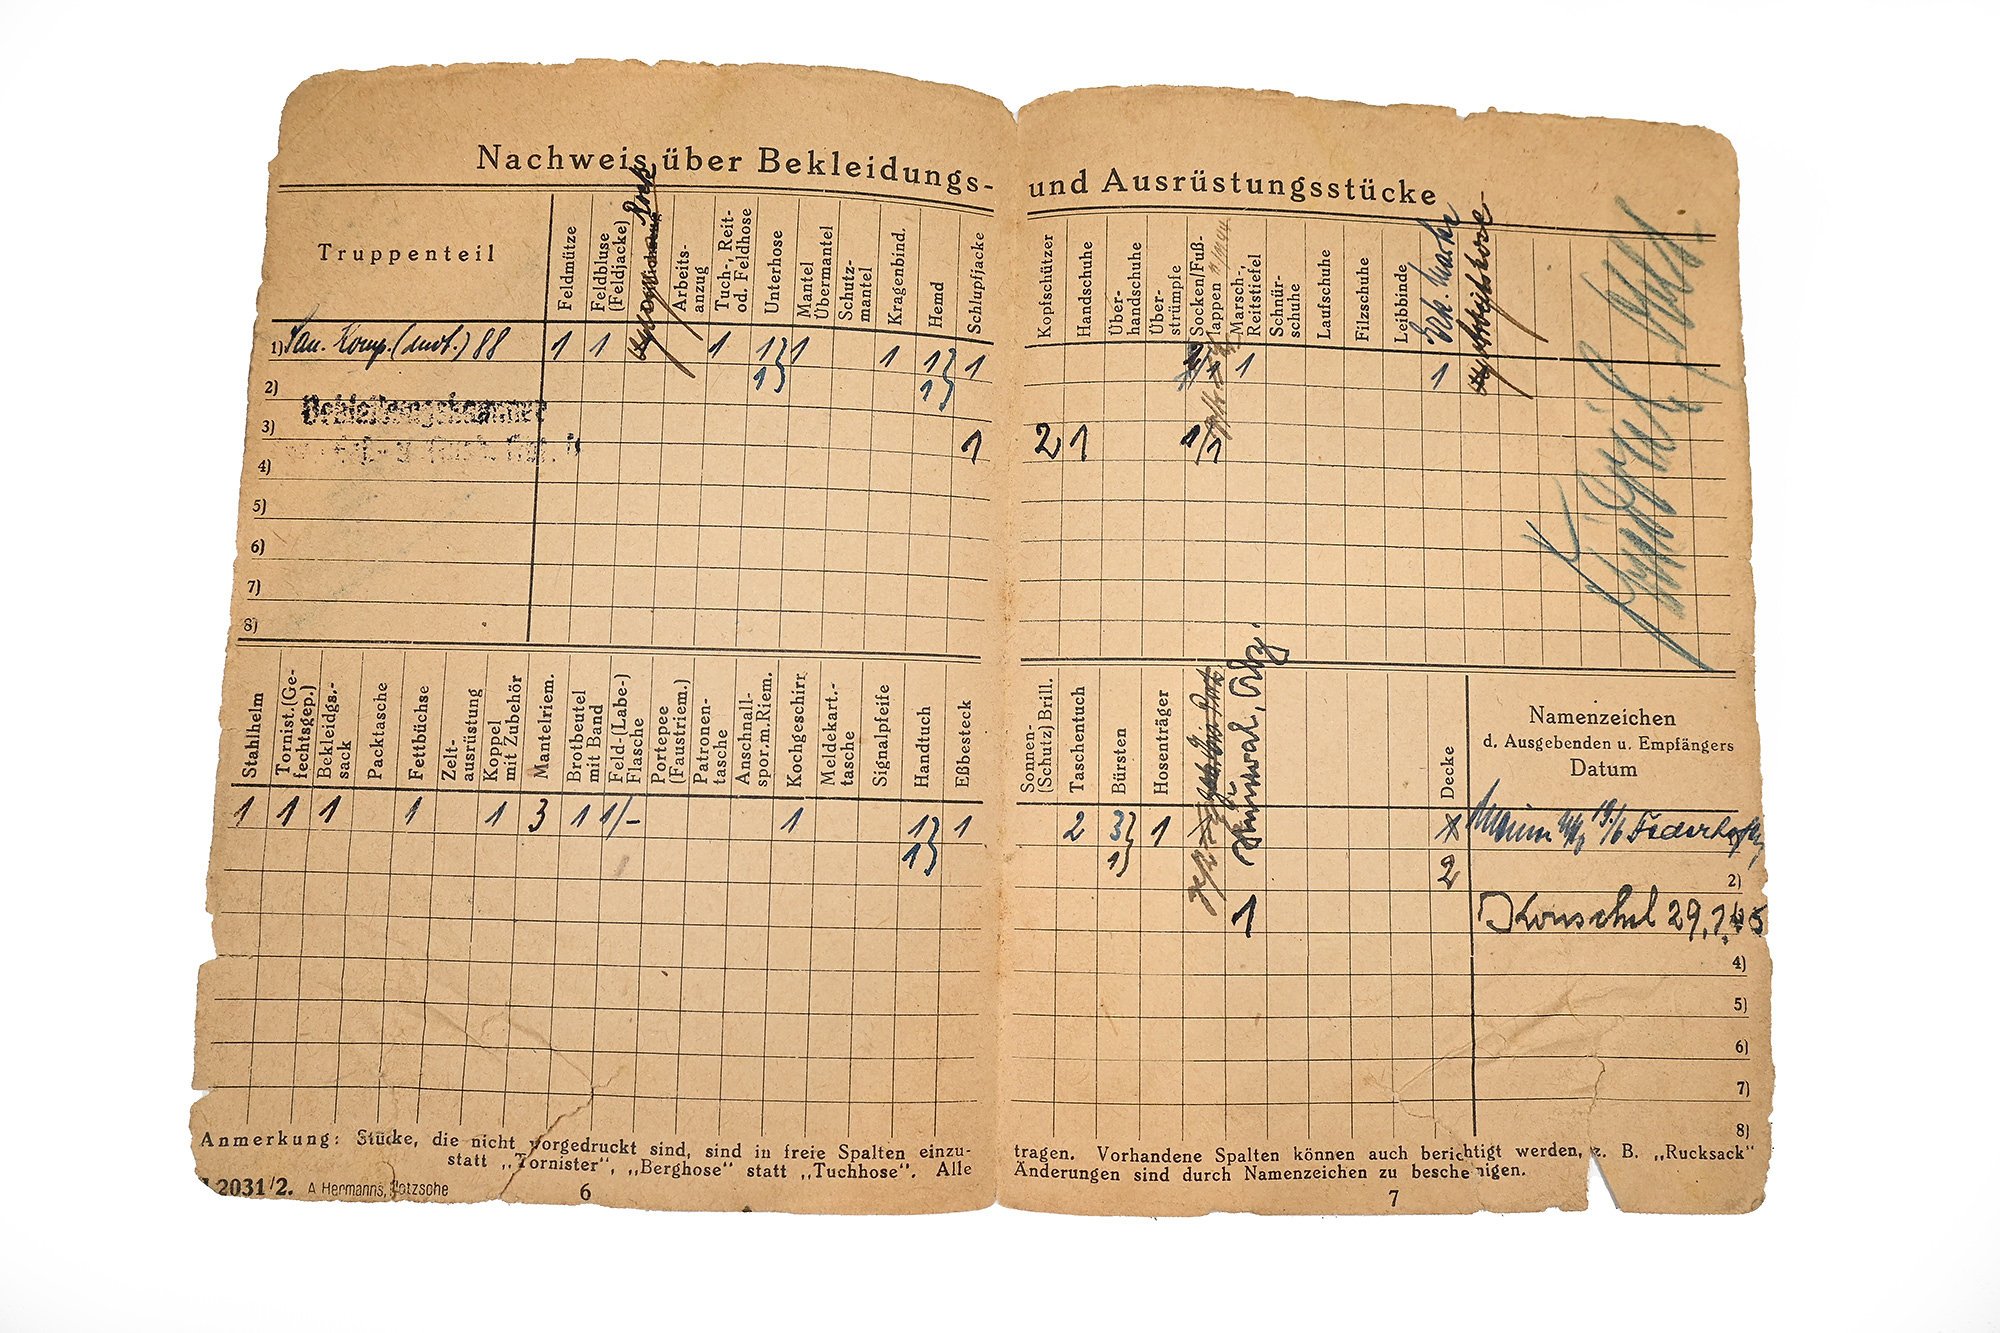 Nachweis über Bekleidungs- und Ausrüstungsstücke
Truppenteil
Feldmütze
Feldbluse (Feldjacke)
Rock
Arbeits-anzug
Tuch-, Reit- od. Feldhose
Unterhose
Mantel Übermantel
Schutz-mantel
Kragenbind.
Hemd
Schlupfjacke
Kopfschützer
Handschuhe
Über-handschuhe
Über-strümpfe
Socken/Fuß-lappen
Marsch-, Reitstiefel
Schnür-schuhe
Laufschuhe
Filzschuhe
Leibbinde
Erk. Marke
1) San. Komp. (mot.) 88 1 1 1 1 1 1 1 1 1 1 1
2) 1 1
Bekleidungskammer
3) 1 2 1 1 1
4)
5)
6)
7)
8)
Stahlhelm
Tornist.(Ge-fechtsgep.)
Bekleidgs.-sack
Packtasche
Fettbüchse
Zelt-ausrüstung
Koppel mit Zubehör
Mantelriem.
Brotbeutel mit Band
Feld-(Labe-) Flasche
Portepee (Faustriem.)
Patronen-tasche
Anschnall-spor.m.Riem.
Kochgeschirr
Meldekart.-tasche
Signalpfeife
Handtuch
Eßbesteck
Sonnen-(Schutz) Brill.
Taschentuch
Bürsten
Hosenträger
Decke
Namenzeichen
d. Ausgebenden u. Empfängers
Datum
1 1 1 1 1 3 1 1/- 1 1 1 2 3 1 19./6
1 1 2 2)
1 29.1.45
4)
5)
6)
7)
8)
Anmerkung: Stücke, die nicht vorgedruckt sind, sind in freie Spalten einzu-
statt „Tornister“, „Berghose“ statt „Tuchhose“. Alle
2031/2. A Hermanns, Zotzsche
6
tragen. Vorhandene Spalten können auch berichtigt werden, z. B. „Rucksack“
Änderungen sind durch Namenzeichen zu bescheinigen.
7